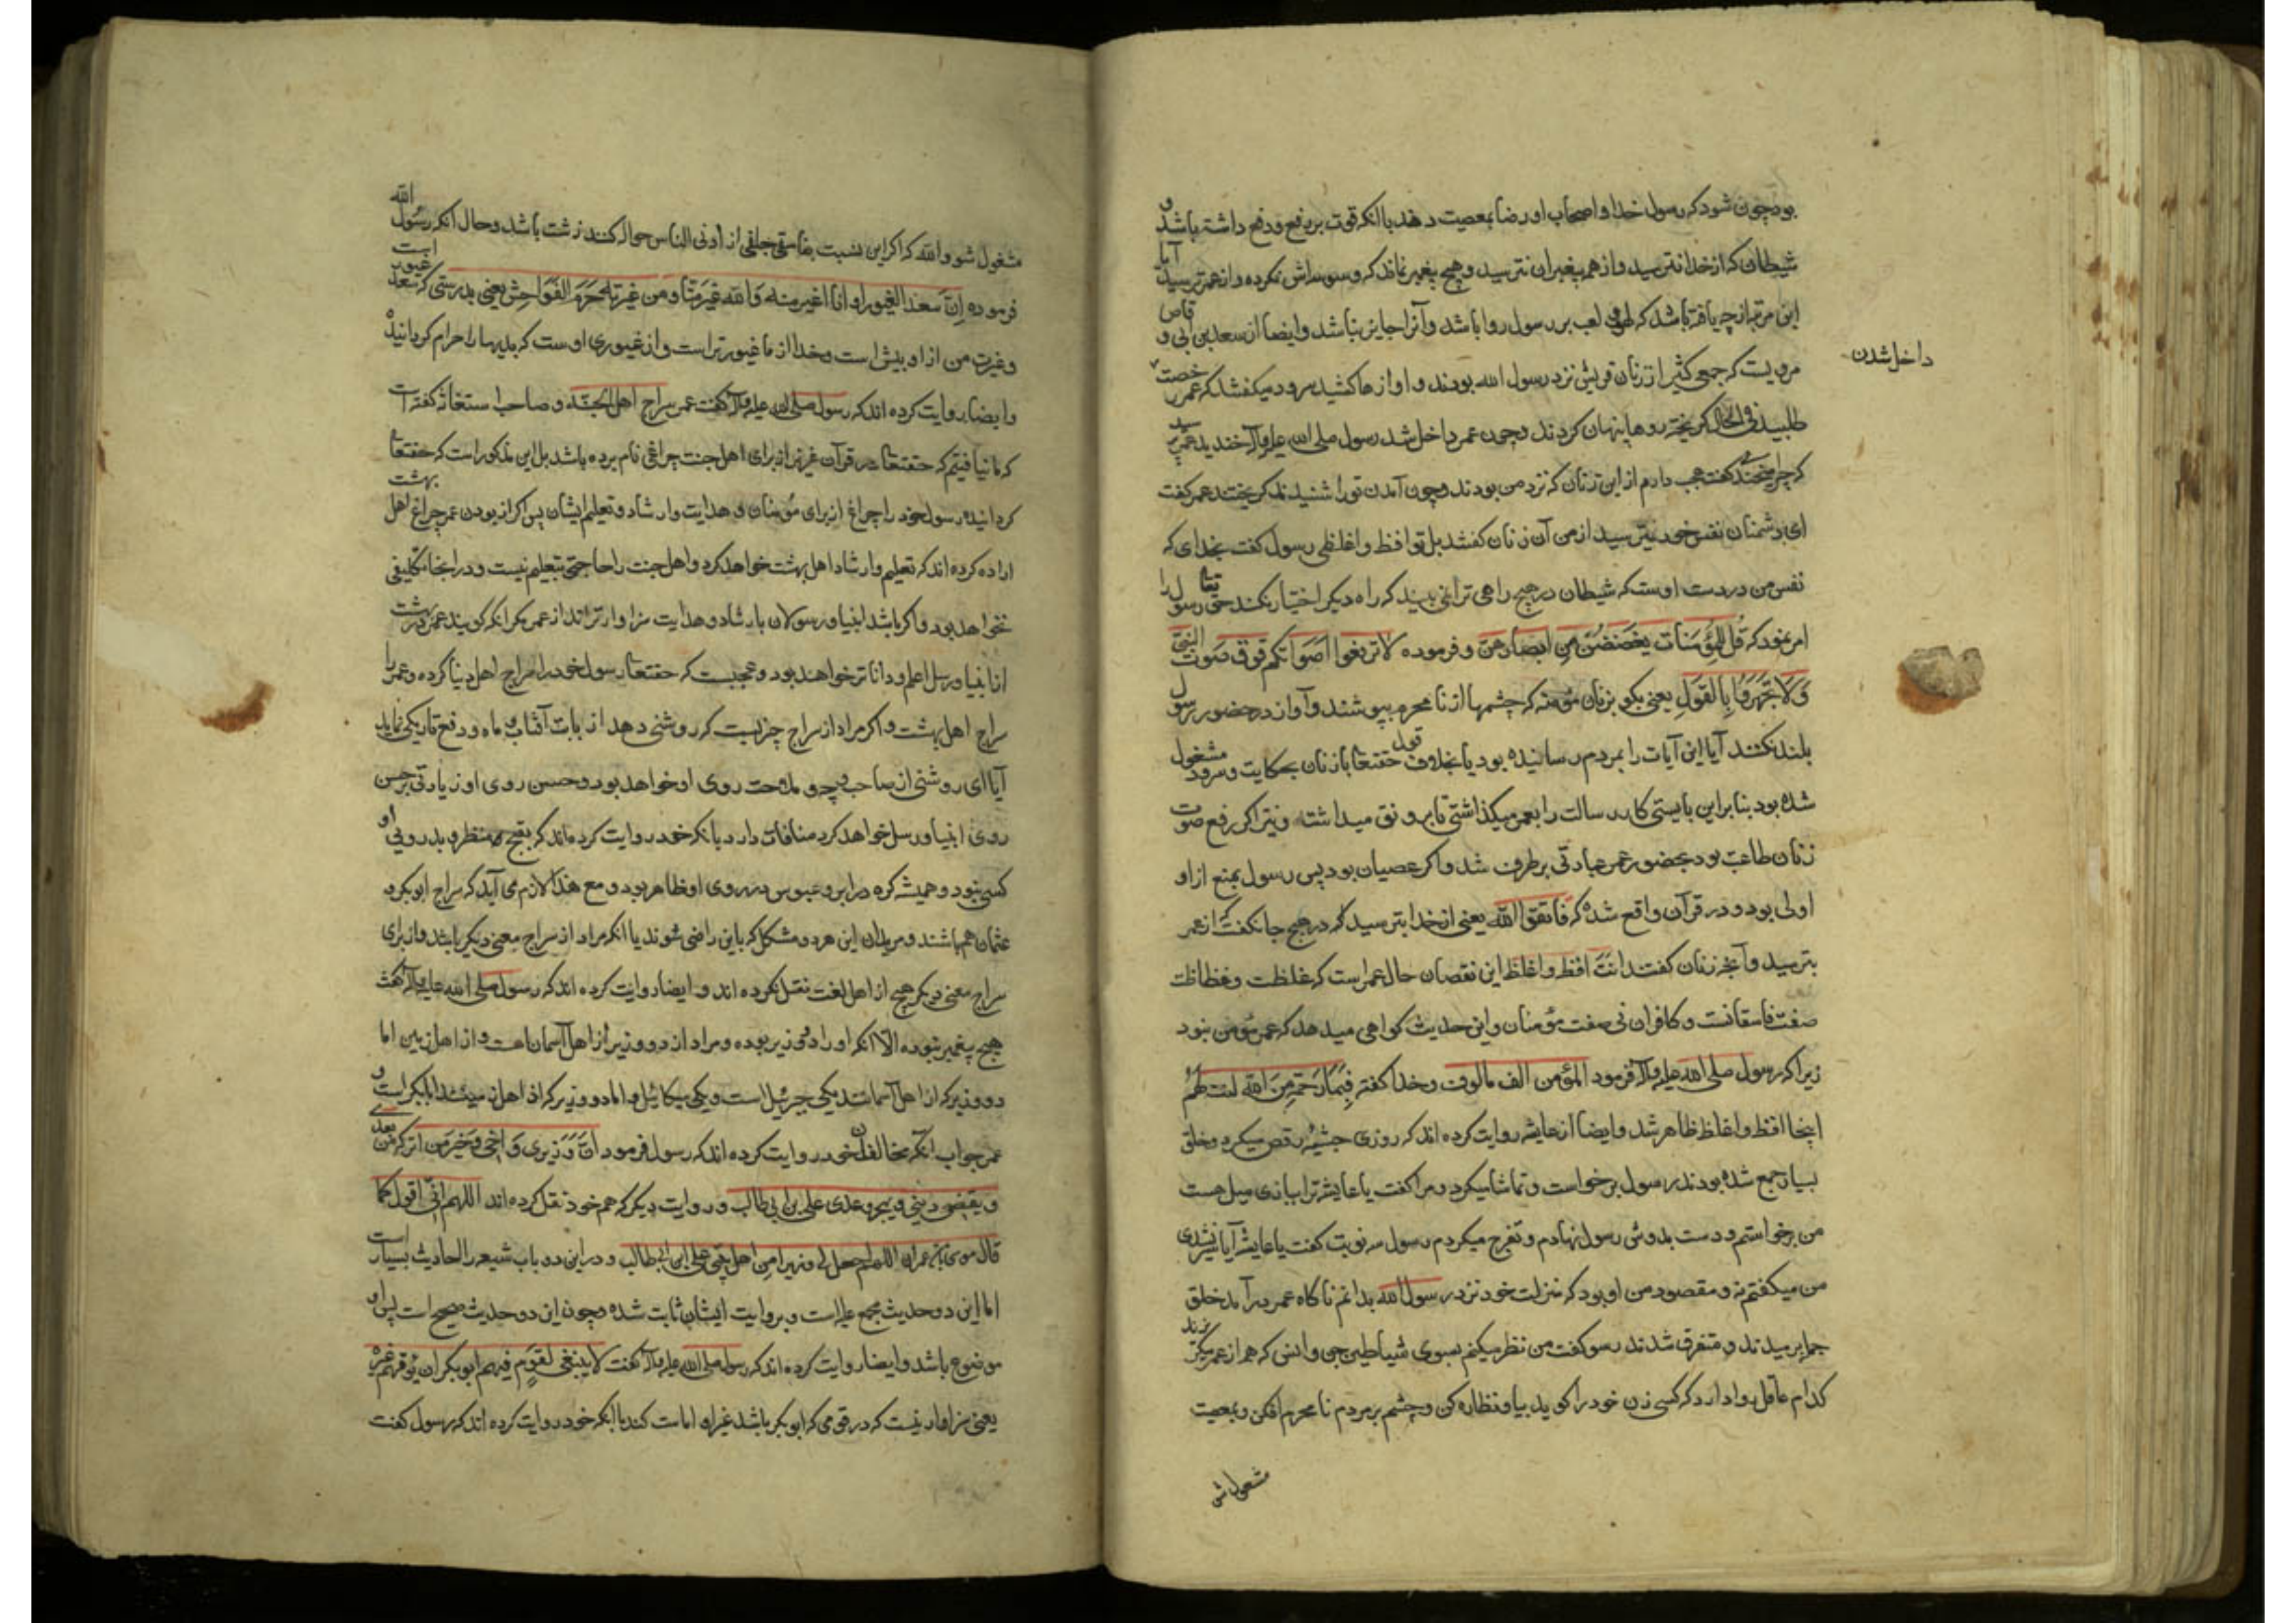 بود چون شود که رسول خدا و اصحاب او رضا بمعصیت دهند با آنکه قوت بر رفع و دفع داشته باشند و
شیطان که از خدا نترسید و از همه پیغمبران نترسید و هیچ پیغمبر نماند که وسوسه اش نکرده و از عمر ترسید آیا
این مرتبه از چه یافته باشد که لهو و لعب بر رسول روا باشد و آنرا جایز نباشد و ایضا از سعد بن ابی وقاص
مرویست که جمعی کثیر از زنان قریش نزد رسول الله بودند و آوازها کشیده سرود میگفتند که عمر رخصت
داخل شدن
طلبید فی الحال گریخته روها پنهان کردند و چون عمر داخل شد رسول صلی الله علیه وآله خندید عمر پرسید
که چرا میخندی گفت عجب دارم از این زنان که نزد من بودند و چون آمدن تو را شنیدند گریختند عمر گفت
ای دشمنان نفس خود میترسید از من آن زنان گفتند بل تو افظ و اغلظی رسول گفت بخدای که
نفس من در دست اوست که شیطان در هیچ راهی ترا نمی بیند که راه دیگر اختیار نکند حق تعا رسول را
امر نمود که قُل لِلمُؤمِنَات یَغضُضنَ مِن اَبصَارِهِنَّ و فرموده لَا تَرفَعُوا اَصوَاتَکُم فَوقَ صَوتِ النَّبِیِّ
وَلَا تَجهَرُوا بِالقَولِ یعنی بگو بزنان مؤمنه که چشمها از نا محرم بپوشند و آواز در حضور رسول
بلند نکنند آیا این آیات را بمردم رسانیده بود یا بخلاف قول حقتعا با زنان بحکایت و سرود مشغول
شده بود بنابراین بایستی کار رسالت را بعمر میگذاشتی تا برونق میداشت و نیز اگر رفع صوت
زنان طاعت بود بحضور عمر عبادتی برطرف شد و اگر عصیان بود پس رسول بمنع از او
اولی بود و در قرآن واقع شده که فَاتَّقُوا الله یعنی از خدا بترسید که در هیچ جا نگفت که از عمر
بترسید و آنچه زنان گفتند انت افظ و اغلظ این نقصان حال عمر است که غلظت و فظاظت
صفت فاسقانست و کافران نی صفت مؤمنان و این حدیث گواهی میدهد که عمر مؤمن نبود
زیرا که رسول صلی الله علیه وآله فرمود المؤمن الف مالوف و خدا گفته فَبِمَا رَحمَةٍ مِنَ اللهِ لِنتَ لَهُم
اینجا افظ و اغلظ ظاهر شد و ایضا از عایشه روایت کرده اند که روزی حبشیه رقص میکرد و خلق
بسیار جمع شده بودند رسول برخواست و تماشا میکرد و مرا گفت یا عایشه ترا ببازی میل هست
من برخواستم و دست بدوش رسول نهادم و تفرج میکردم رسول سه نوبت گفت یا عایشه آیا سیر نشدی
من میگفتم نه و مقصود من او بود که منزلت خود نزد رسول الله بدانم ناگاه عمر درآمد خلق
جا برمیدند و متفرق شدند رسول گفت من نظر میکنم بسوی شیاطین جن و انس که هم از عمر میگریزند
کدام عاقل روا دارد که کسی زن خود را گوید بیا و نظاره کن و چشم بر مردم نا محرم افکن و بمعصیت
مشغول شو
مشغول شو والله که اگر این نسبت بفاسقی جلفی از ادنی الناس حواله کنند زشت باشد و حال آنکه رسول الله
فرموده اِنَّ سَعدَ الغیور او انا اغیر منه وَالله غیر منّا و من غیرته حَرَّمَ الفَوَاحِش یعنی بدرستی که سعد غیور است
و غیرت من از او بیش است و خدا از ما غیورتر است و از غیوری اوست که بدیها را حرام گردانیده
و ایضا روایت کرده اند که رسول صلی الله علیه وآله گفت عمر سراج اهل الجنّة و صاحب استغاثه گفته است
که ما نیافتیم که حقتعا در قرآن غیر از برای اهل جنت چراغی نام برده باشد بل این مذکور است که حقتعا
گردانیده رسول خود را چراغ از برای مؤمنان و هدایت و ارشاد و تعلیم ایشان پس اگر از بودن عمر چراغ اهل بهشت
اراده کرده اند که تعلیم و ارشاد اهل بهشت خواهد کرد و اهل جنت را حاجتی بتعلیم نیست و در اینجا تکلیفی
نخواهد بود و اگر باشد انبیا و رسولان بارشاد و هدایت سزاوارتر اند از عمر مگر آنکه گویند عمر در بهشت
از انبیا و رسل اعلم و داناتر خواهند بود و عجبست که حقتعا رسول خود را سراج اهل دنیا کرده و عمر را
سراج اهل بهشت و اگر مراد از سراج چیزیست که روشنی دهد از بابت آفتاب و ماه و دفع تاریکی نماید
آیا ای روشنی از صاحب چه و ملاحت روی او خواهد بود و حسن روی او زیادتی بر حسن
روی انبیا و رسل خواهد کرد منافات دارد با آنکه خود روایت کرده اند که بقبح منظر و بدرویی او
کسی نبود و همیشه گره در ابرو و عبوس در روی او ظاهر بود و مع هذا لازم می آید که سراج ابوبکر و
عثمان هم باشند و مریدان این هر دو مشکل که باین راضی شوند یا آنکه مراد از سراج معنی دیگر باشد و از برای
سراج معنی دیگر هیچ از اهل لغت نقل نکرده اند و ایضا روایت کرده اند که رسول صلی الله علیه وآله گفت
هیچ پیغمبر نبوده الا آنکه او را دو وزیر بوده و مراد از دو وزیر از اهل آسمان است و از اهل زمین اما
دو وزیر که از اهل آسمانند یکی جبرئیل است و یکی میکائیل و اما دو وزیر که از اهل زمینند ابابکر است و
عمر جواب آنکه مخالفان خود روایت کرده اند که رسول فرمود انَّ وَزیری وَ اَخی وَ خَیرَ من اترکه من بعدی
و یقضی دینی و ینجز وعدی علی بن ابی طالب و روایت دیگر که هم خود نقل کرده اند اللهم انّی اقول کما
قال موسی بن عمران اللهم اجعل لی وزیرا من اهلی علی ابن ابی طالب و در این دو باب شیعه را احادیث بسیار است
اما این دو حدیث مجمع علیه است و بروایت ایشان ثابت شده و چون این دو حدیث صحیح است پس او
موضوع باشد و ایضا روایت کرده اند که رسول صلی الله علیه وآله گفت لا ینبغی لقومٍ فیهم ابوبکر ان یؤمهم غیره
یعنی سزاوار نیست که در قومی که ابوبکر باشد غیر او امامت کند با آنکه خود روایت کرده اند که رسول گفت